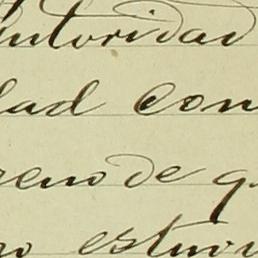 autoridad
dad con
reno de q
o estuvi